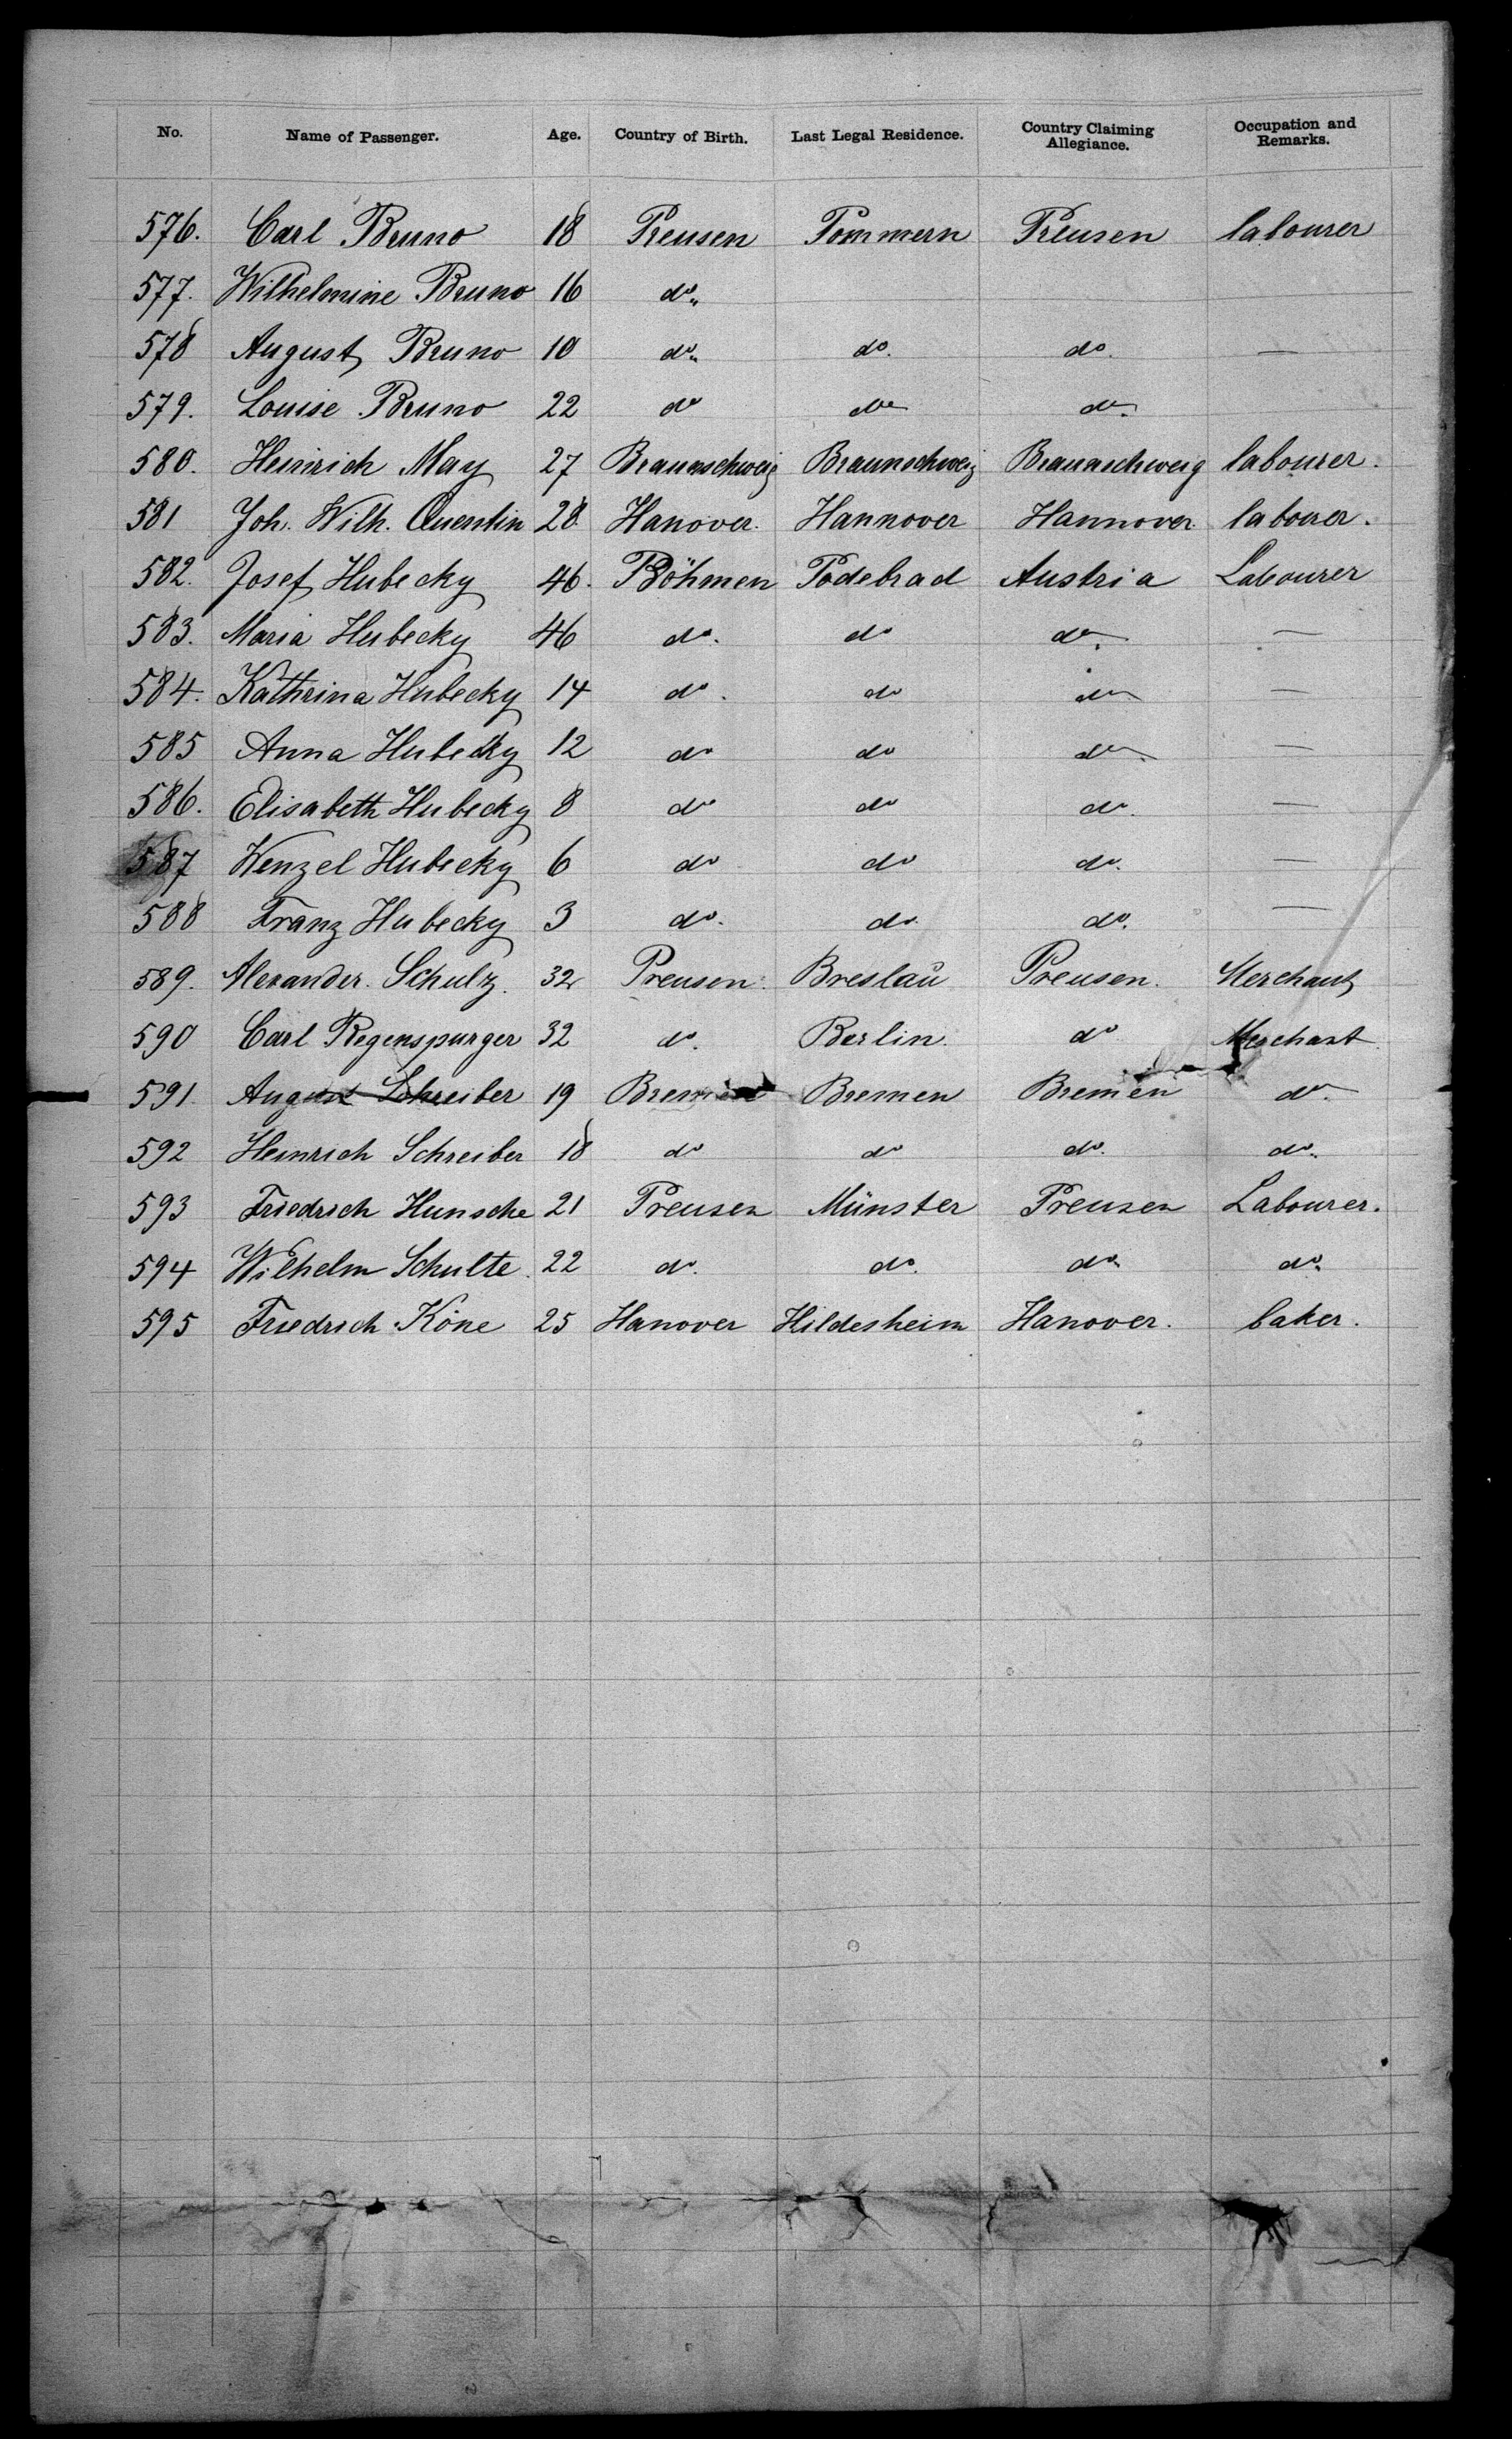 No. Name of Passenger. Age. Country of Birth. Last Legal Residence. Country Claiming Allegiance. Occupation and Remarks.
576. Carl Bruno 18 Preusen Pommern Preusen labourer
577. Wilhelmine Bruno 16 do„
578 August Bruno 10 do„ do. do. —
579. Louise Bruno 22 do do do.
580. Heinrich May 27 Braunschweig Braunschweig Braunschweig labourer.
581 Joh. Wilh. Quentin 28. Hanover. Hannover Hannover. labourer.
582. Josef Hubecky 46. Böhmen Podebrad Austria Labourer
583. Maria Hubecky 46 do. do do. —
584. Kathrina Hubecky 14 do. do do. —
585 Anna Hubecky 12 do do do. —
586. Elisabeth Hubecky 8 do do do. —
587 Wenzel Hubecky 6 do do do. —
588 Franz Hubecky 3 do. do. do. —
589. Alexander. Schulz. 32 Preusen. Breslau Preusen. Merchant
590 Carl Regenspurger 32 do. Berlin. do Merchant
591. August Schreiber 19 Bremen Bremen Bremen do.
592 Heinrich Schreiber 18 do do do. do„
593 Friedrich Hunsche 21 Preusen Münster Preusen Labourer.
594 Wilhelm Schulte. 22 do. do. do„ do„
595 Friedrich Köne 25 Hanover Hildesheim Hanover. baker.